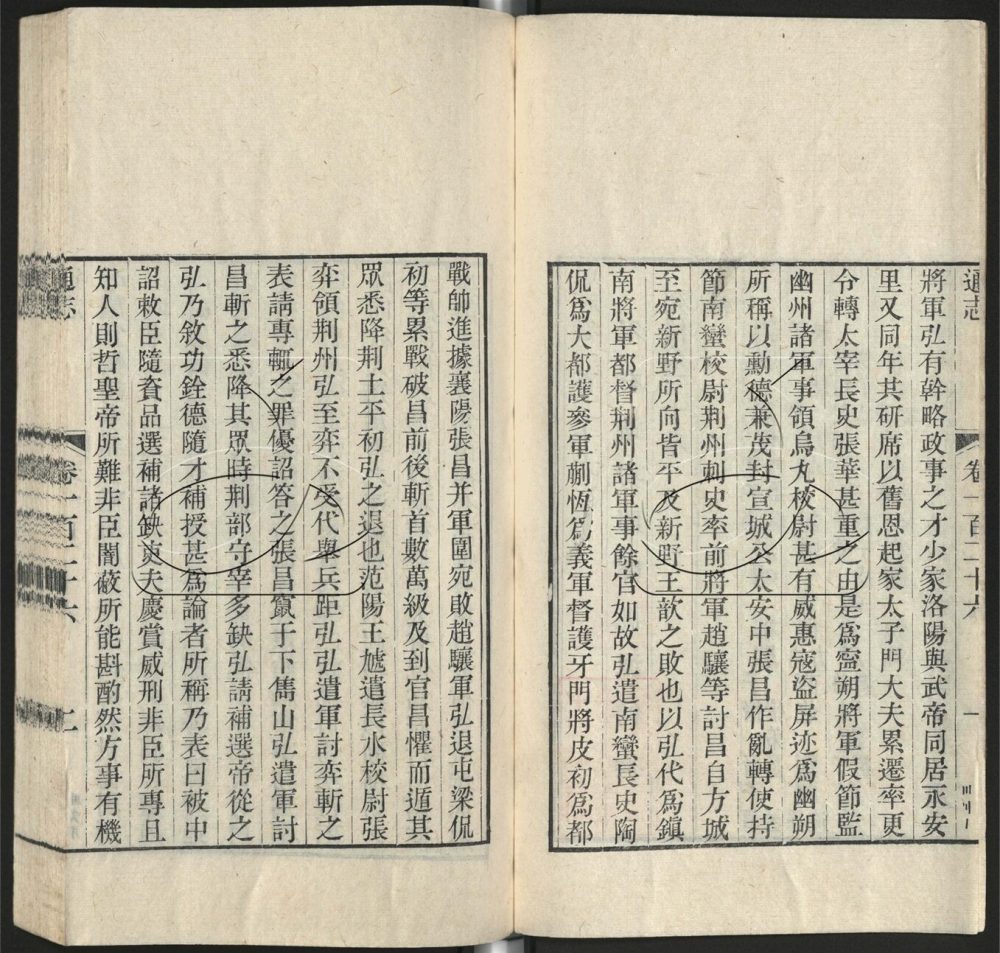 通志
卷一百二十六
一
將軍弘有幹略政事之才少家洛陽與武帝同居永安
里又同年共研席以舊恩起家太子門大夫累遷率更
令轉太宰長史張華甚重之由是爲寧朔將軍假節監
幽州諸軍事領烏丸校尉甚有威惠寇盜屏迹爲幽朔
所稱以勳德兼茂封宣城公太安中張昌作亂轉使持
節南蠻校尉荆州刺史率前將軍趙驤等討昌自方城
至宛新野所向皆平及新野王歆之敗也以弘代爲鎭
南將軍都督荆州諸軍事餘官如故弘遣南蠻長史陶
侃爲大都護參軍蒯恆爲義軍督護牙門將皮初爲都
戰帥進據襄陽張昌并軍圍宛敗趙驤軍弘退屯梁侃
初等累戰破昌前後斬首數萬級及到官昌懼而遁其
眾悉降荆土平初弘之退也范陽王虓遣長水校尉張
弈領荆州弘至弈不受代舉兵距弘弘遣軍討弈斬之
表請專輒之罪優詔答之張昌竄于下雋山弘遣軍討
昌斬之悉降其眾時荆部守宰多缺弘請補選帝從之
弘乃敘功銓德隨才補授甚爲論者所稱乃表曰被中
詔敕臣隨資品選補諸缺吏夫慶賞威刑非臣所專且
知人則哲聖帝所難非臣闇蔽所能斟酌然方事有機
通志
卷一百二十六
二